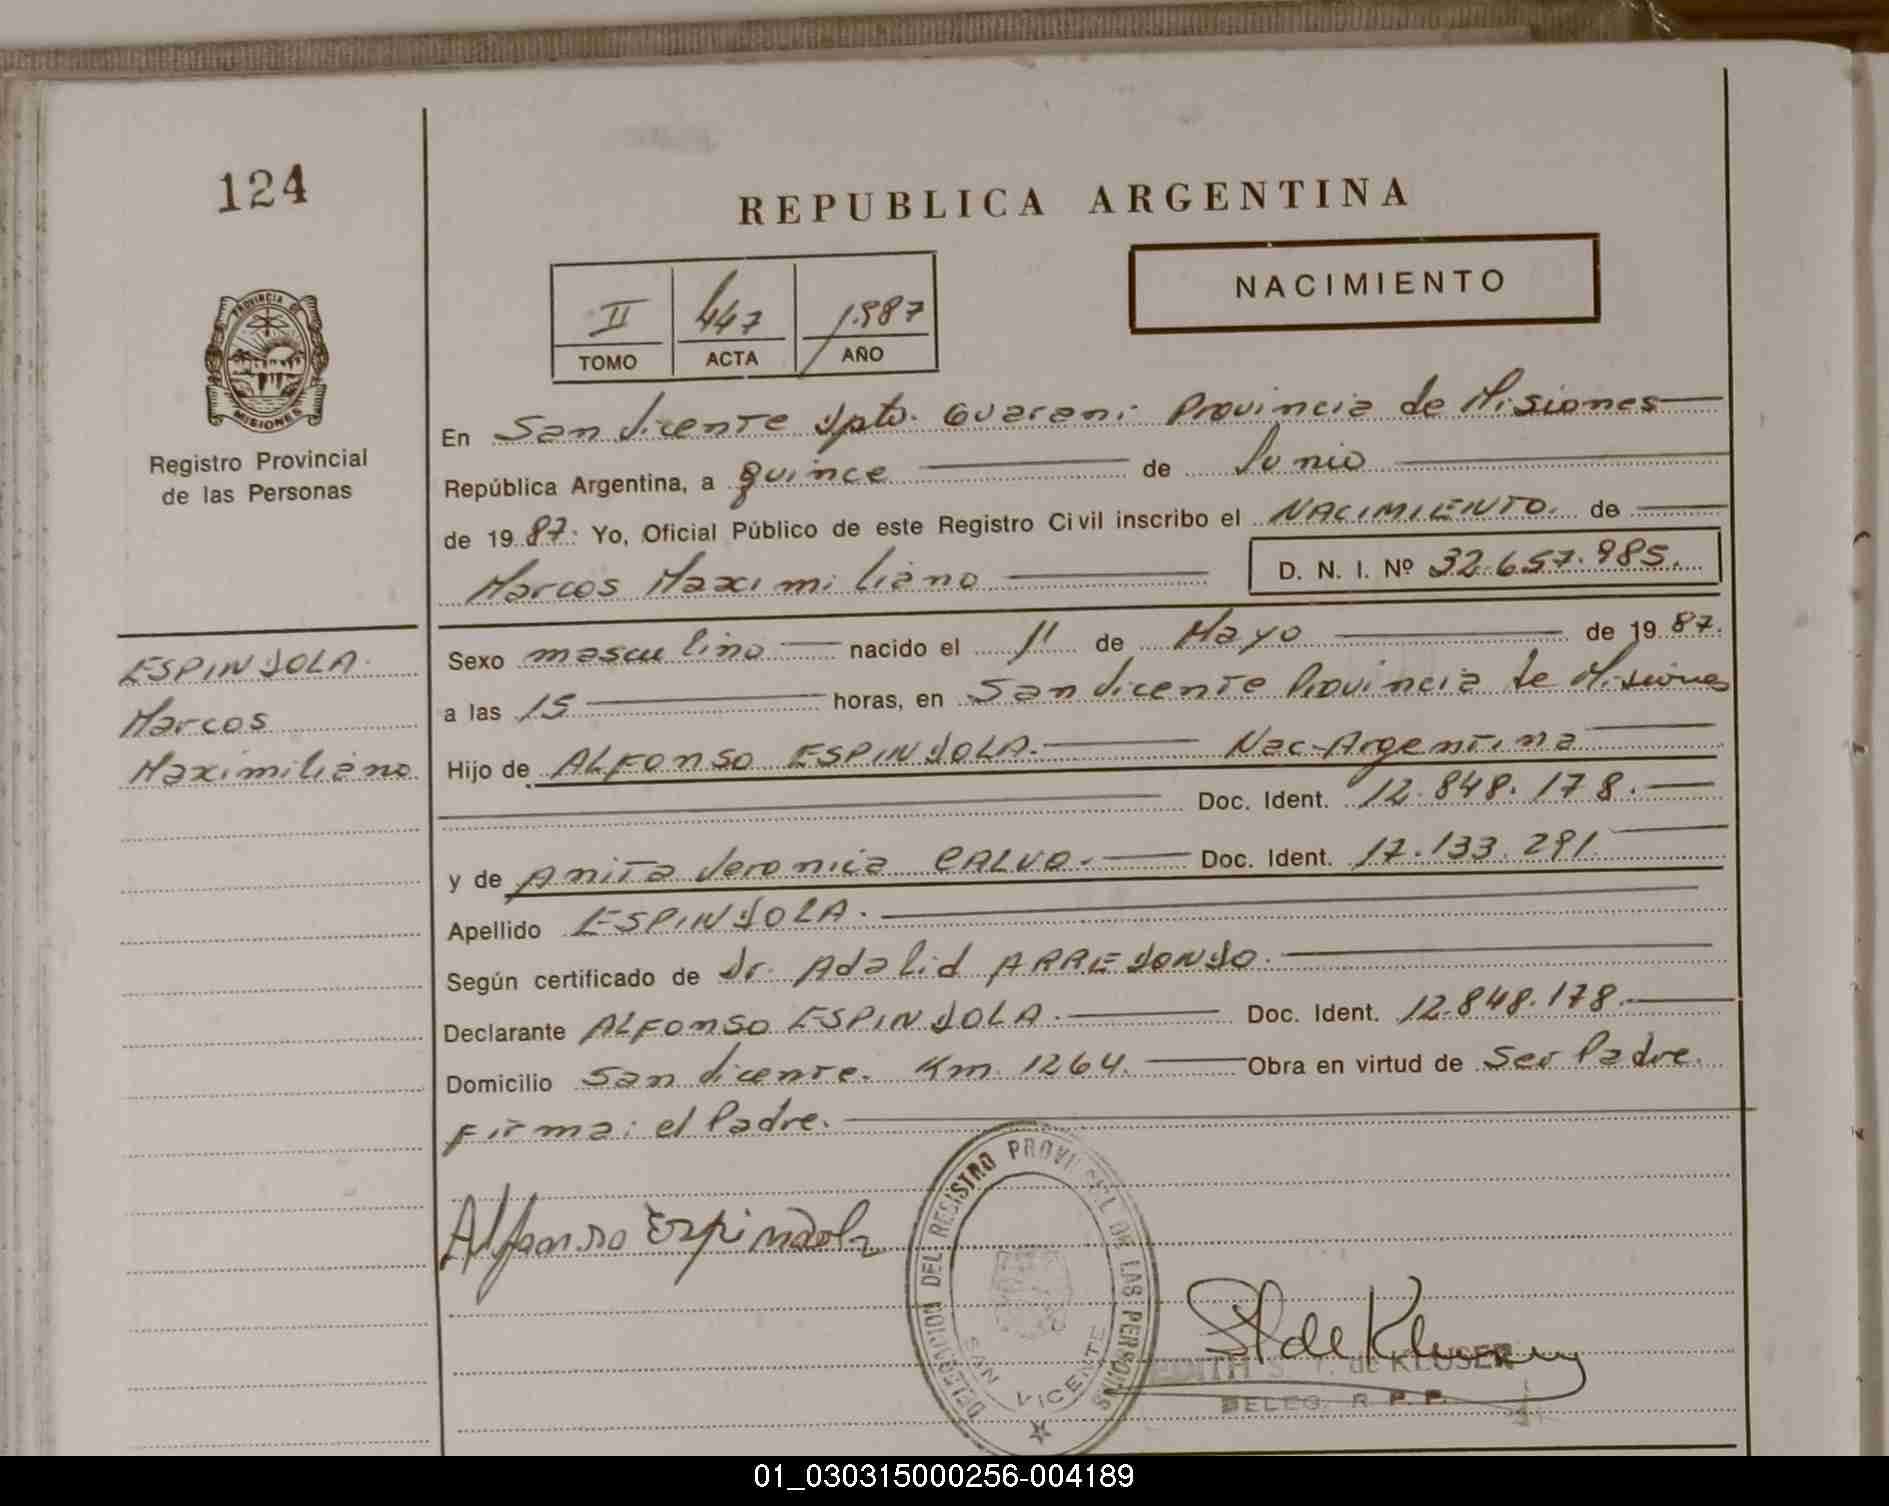 124
REPUBLICA ARGENTINA
II 447 1.987
TOMO ACTA AÑO
NACIMIENTO
PROVINCIA DE
MISIONES
Registro Provincial
de las Personas
En San Vicente Dpto. Guarani Provincia de Misiones
República Argentina, a quince de Junio
de 1987: Yo, Oficial Público de este Registro Civil inscribo el NACIMIENTO. de
Marcos Maximiliano D. N. I. Nº 32.657.985.
ESPINDOLA.
Marcos
Maximiliano
Sexo masculino nacido el 11 de Mayo de 1987.
a las 15 horas, en San Vicente Provincia de Misiones
Hijo de ALFONSO ESPINDOLA. Nac. Argentina
Doc. Ident. 12.848.178.
y de Anita Veronica CALVO. Doc. Ident. 17.133.291
Apellido ESPINDOLA.
Según certificado de Dr. Adalid ARREDONDO.
Declarante ALFONSO ESPINDOLA. Doc. Ident. 12.848.178.
Domicilio San Vicente. Km. 1264. Obra en virtud de Ser Padre.
Firma: el Padre.
Alfonso Espindola
DELEGACION DEL REGISTRO PROVINCIAL DE LAS PERSONAS
SAN VICENTE
EDITH S. de KLUSER
DELEG. R. P. P.
01_030315000256-004189